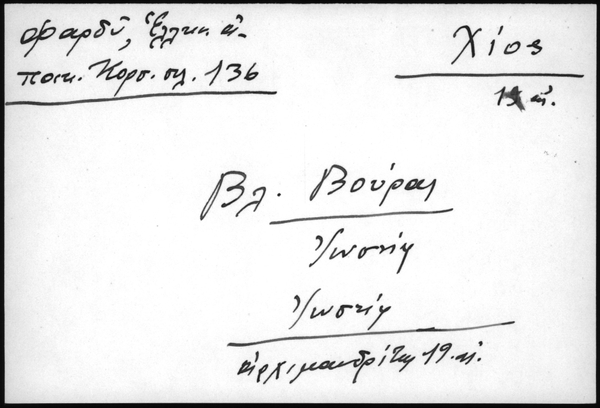 Φαρδύ, Ἑλλην. ἀ-
ποικ. Κορσ. σελ. 136
Χίος
19 αἰ.
Βλ. Βούρας
Ἰωσήφ
Ἰωσήφ
ἀρχιμανδρίτης 19. αἰ.